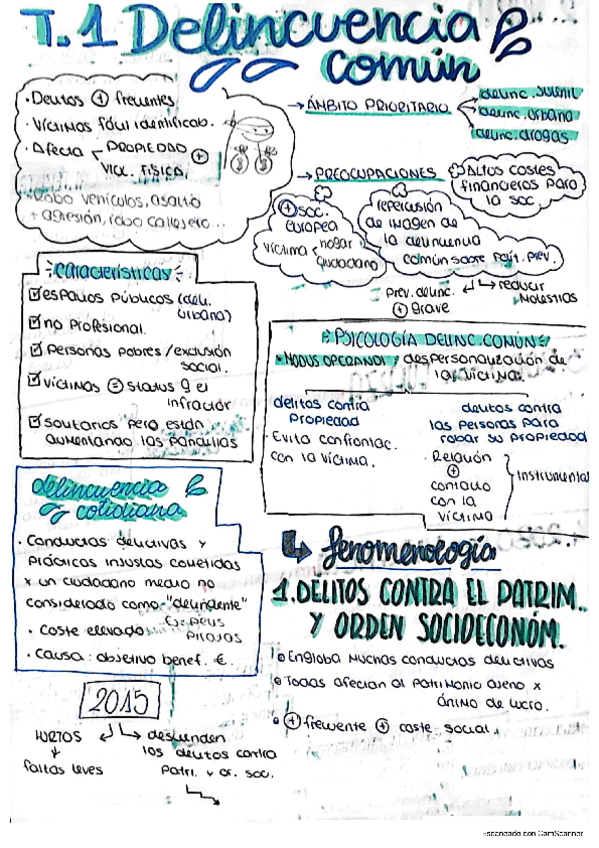 T.1 Delincuencia
común
· Delitos + frecuentes
· Víctimas fácil identificab.
· Afecta PROPIEDAD +
VIOL. FÍSICA
Robo vehículos, asalto
+ agresión, robo callejero...
→ ÁMBITO PRIORITARIO
delinc. juvenil
delinc. urbana
delinc. drogas
→ PREOCUPACIONES
Altos costes
financieros para
la soc.
+ soc.
europea
víctima hogar
ciudadano
repercusión
de imagen de
la delincuencia
común sobre polít. prev.
Prev. delinc.
+ grave
reducir
molestias
Características
espacios públicos (deli.
urbana)
no profesional.
Personas pobres / exclusión
social.
víctimas = status q el
infractor
solitarios pero están
aumentando las pandillas
PSICOLOGÍA DELINC. COMÚN
· MODUS OPERANDI / despersonalización de
la víctima.
delitos contra
propiedad
· Evita confrontac.
con la víctima.
delitos contra
las personas para
robar su propiedad
· Relación
+
contacto
con la
víctima
Instrumental
delincuencia
cotidiana
· Conductas delictivas y
prácticas injustas cometidas
x un ciudadano medio no
considerado como "delindente"
Ej: pelis
piratas
· Coste elevado
· causa: objetivo benef. €.
2015
HURTOS
↓
faltas leves
descienden
los delitos contra
Patri. y or. soc.
↳ fenomenología
1. DELITOS CONTRA EL PATRIM.
Y ORDEN SOCIOECONÓM.
Engloba muchas conductas delictivas
Todas afectan al patrimonio ajeno x
ánimo de lucro.
+ frecuente + coste social.
Escaneado con CamScanner